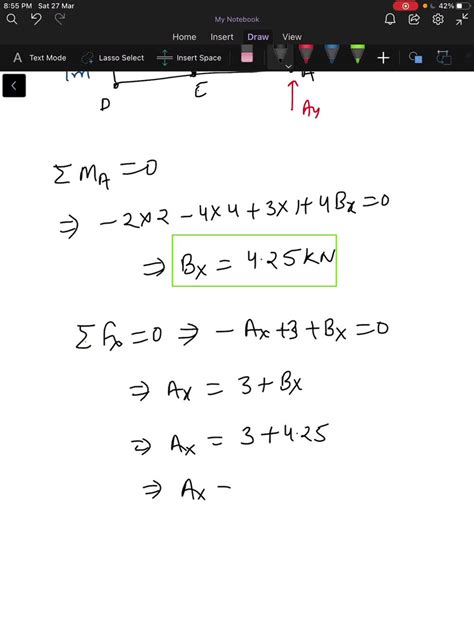 8:55 PM Sat 27 Mar
42%
My Notebook
Home Insert Draw View
A Text Mode Lasso Select Insert Space
1m
D E A
Ay
Σ MA = 0
⇒ - 2×2 - 4×4 + 3×1 + 4Bx = 0
⇒ Bx = 4.25 KN
Σ Fx = 0 ⇒ - Ax + 3 + Bx = 0
⇒ Ax = 3 + Bx
⇒ Ax = 3 + 4.25
⇒ Ax -